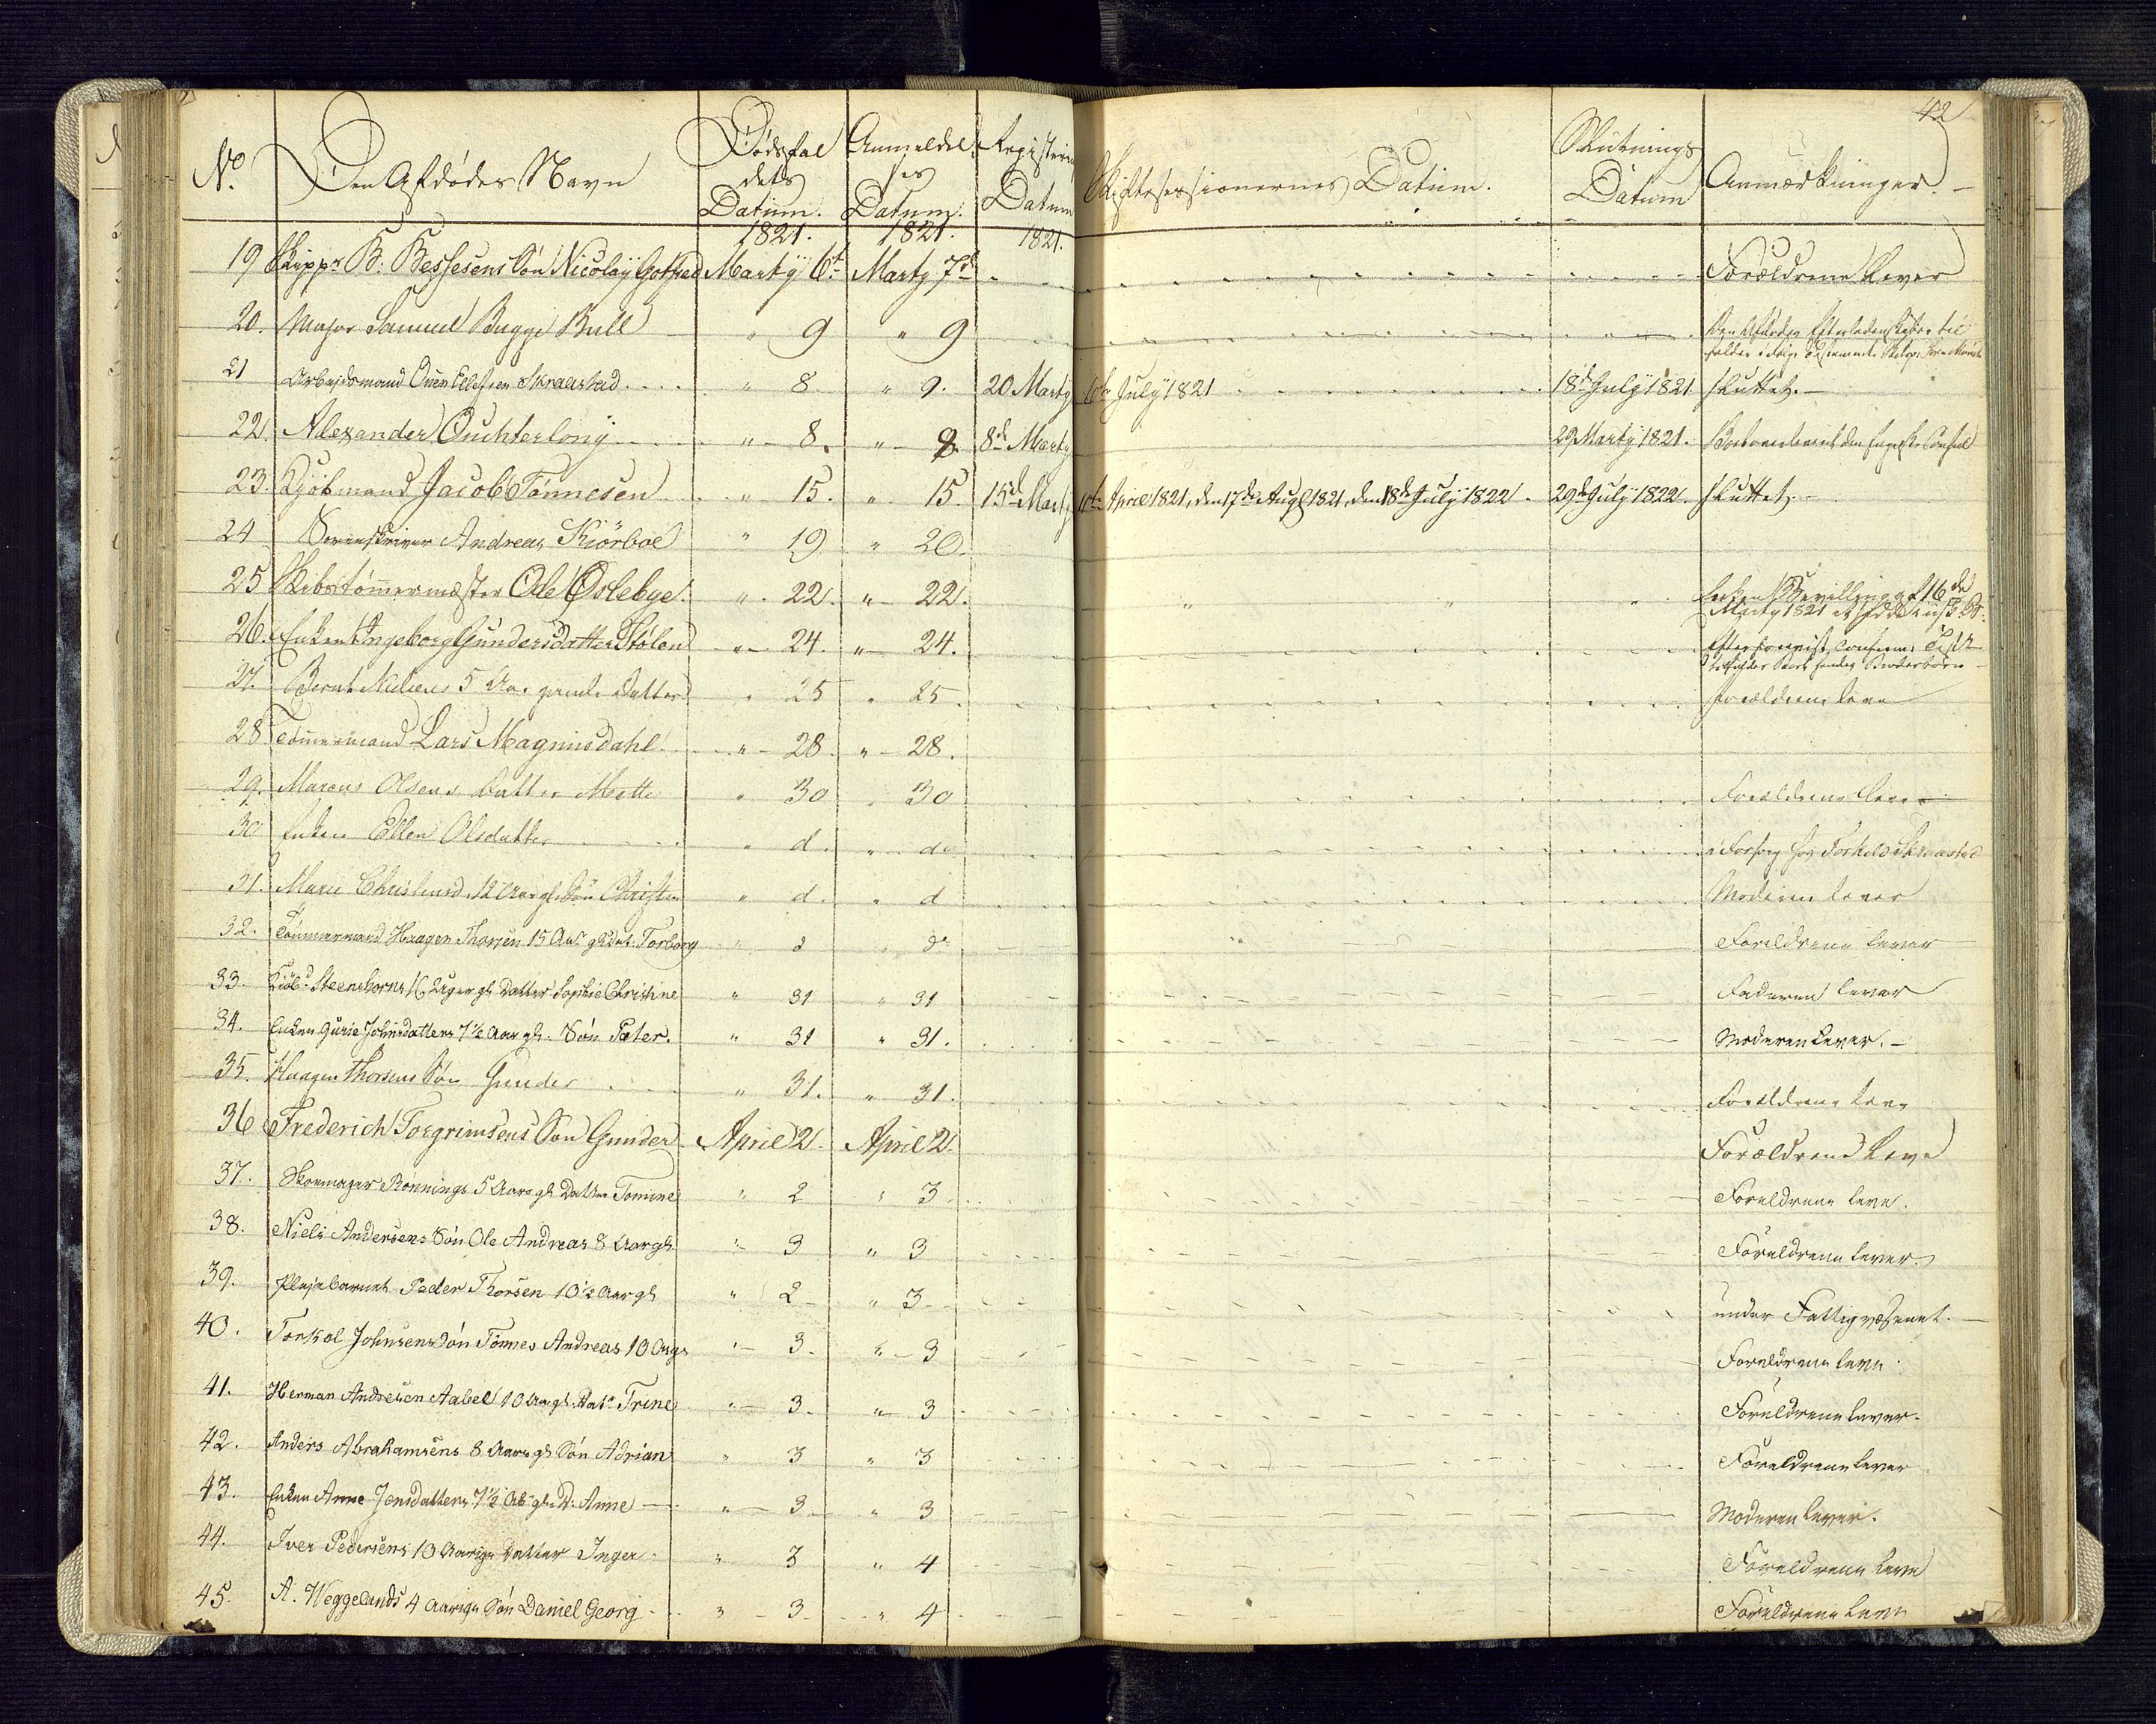 42
No. Den Afdødes Navn Dødsfaldets Datum. Anmeldelses Datum. Registerings Datum Skiftesessionernes Datum. Slutnings Datum Anmærkninger. —
1821. 1821. 1821.
19 Skippr B: Bessesens Søn Nicolay Gotfred Marty 6t Marty 7d Forældrene Lever
20. Major Samuel Bugge Bull " 9 " 9 Den Afdødes Efterladenskaber til
falder
21 Arbeidsmand Ellefsen Skraastad " 8 " 9. 20 Marty 6te July 1821 18de July 1821. sluttet. —
22. Alexander Ouchterlony " 8. " 8. 8de Marty 29 Marty 1821. den Engelske Consul
23. Kjøbmand Jacob Tønnesen " 15. " 15. 15d Marty April 1821, den 17de Augt 1821, den 18de July 1822. 29de July 1822. sluttet. —
24 Sorenskriver Andreas Kiørboe " 19 " 20.
25 Skibstømmermester Ole Oslebye. " 22. " 22. " " " Enken Bevilling af 16de
Marty 1821
26. Enken Ingeborg Gundersdatter Stølen " 24. " 24.
27. Bernt Nielsens 5 Aar gamle Datter " 25 " 25. forældrene leve
28. Tømmermand Lars Magnusdahl " 28 " 28.
29. Marcus Olsens Datter Mette " 30 " 30 Forældrene leve
30 Enken Ellen Olsdatter " d. " do i forsorg hos Torkild Skraastad
31. Maren Christensd. 12 Aar gl. Søn Christen " d. " d Moderen lever
32. Tømmermand Haagen Thorsen 15 Aar gl Dat: Torborg " d " do Forældrene lever
33. Kiøbd Steenhorns 16 Uger gl Datter Sophie Christine " 31 " 31 Faderen lever
34. Enken Gurie Johnsdatters 7½ Aar gl. Søn Peter. " 31 " 31. Moderen Lever. —
35. Haagen Thorsens Søn Gunder " 31. " 31. Forældrene leve
36 Frederich Torgrimsens Søn Gunder April 2. April 2. Forældrene Leve
37. Skomager Rønnings 5 Aars gl Datter Tomine " 2 " 3 Foreldrene leve.
38. Niels Andersens Søn Ole Andreas 8 Aar gl. " 3 " 3 Foreldrene lever.
39. Plejebarnet Peder Thorsen 10½ Aar gl " 2 " 3 under Fattigvæsenet. —
40. Torkel Johnsens Søn Tønnes Andreas 10 " 3. " 3 Foreldrene leve.
41. Herman Andresen Aabel 10 Aar gl. Datr Trine " 3. " 3 Foreldrene lever.
42. Anders Abrahamsens 8 Aars gl Søn Adrian " 3 " 3 Foreldrene lever
43. Enken Anne Jensdatters 7½ Ar gl. D. Anne — " 3 " 3 Moderen lever.
44. Iver Pedersens 10 Aarige Datter Inger " 3 " 4 Foreldrene leve
45. A. Weggelands 4 Aarige Søn Daniel Georg " 3 " 4 Foreldrene leve